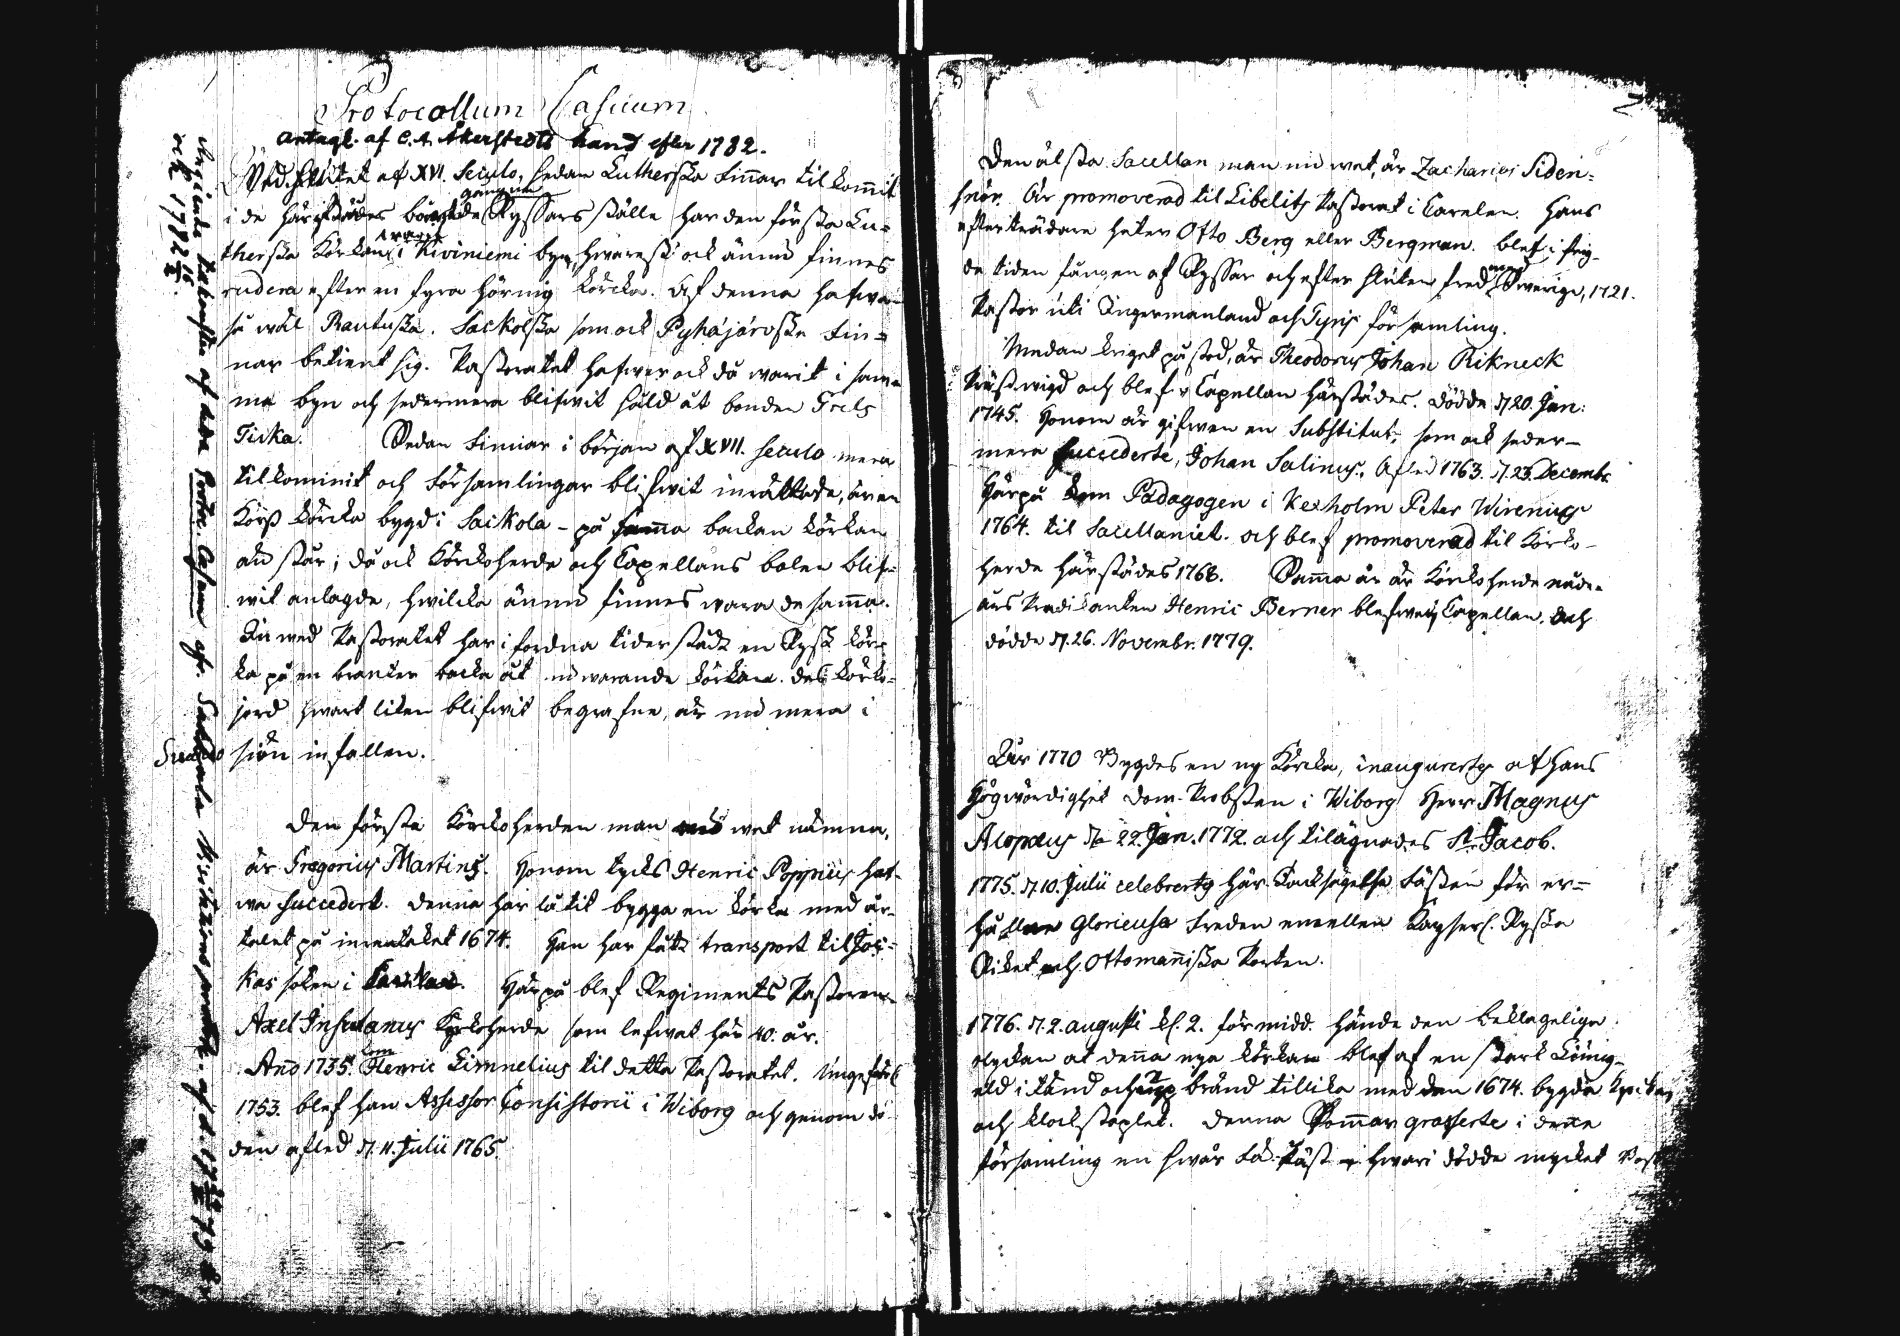 Protocollum Casuum
antagl. af C. A. Åkerstedts hand efter 1782.
Vid slutet af XVI. Seculo, sedan Lutherska Finnar til kommit
i de härstädes bodde gamma Ryssars ställe har den första Lu-
therska Körkan i Kiviniemi byn, hwarest ock ännu finnes
rudera efter en fyra hörnig körcka. Af denna hafwa
så wäl Rautuska, Sackolska som ock Pyhäjärvska Fin-
nar betient sig. Pastoratet hafwer ock då warit i sam-
ma byn och sedermera blifwit såld åt bonden Grels
Tiska. Sedan Finnar i början af XVII. Seculo mera
tilkommit och Församlingar blifwit inrättade, är en
Korß körcka bygd i Sackola - på samma backan körkan
nu står; då ock Körckoherde och Capellans bolen blif-
wit anlagde, hwilcka ännu finnes wara de samma.
Nu wed Pastoratet har i fordna tider städt en Rysk kör-
ka på en branter backa åt nu warande körkan. Des körko-
jord hwart liken blifwit begrafne, är nu mera i
Suwando siön infallen.
Den första Körckoherden man nu wet nämna,
är Gregorius Martini. Honom tycks Henric Poppius haf-
wa succedert. Denna har låtit bygga en körka med år-
talet på inventaket 1674. Han har fått transport til Jos-
kas soken i. Härpå blef Regiments Pastoren
Axel Insulanus Kyrkoherde som lefwat här 40. år.
Anno 1735. kom Henric Limnelius til detta Pastoratet. Ungefärl.
1753. blef han Assessor Consistorii i Wiborg och genom dö-
den afled d. 11. Julii 1765
af Sakkola
och 1792
Den älsta Sacellan man nu wet, är Zacharias Siden-
snör. Är promoverad til Libelitz Pastorat i Carelen. Hans
efterträdare heter Otto Berg eller Bergman. blef i frig-
da tiden fången af Ryssar och efter sluten fred med Swerige, 1721.
Pastor uti Ingermanland och Tyris församling.
Medan kriget påstod, är Theodorus Johan Rikneck
Prästwigd och blef Capellan härstädes. Dödde d. 20. Jan:
1745. Honom är gifwen en Substitut, som ock seder-
mera succederte, Johan Salinus, Afled 1763. d. 23. Decembr.
Härpå kom Pädagogen i Kexholm Peter Wirenius
1764. til Sacellaniet. och blef promoverad til Körko-
herde härstädes 1768. Samma år är Körckoherde nåde-
års Predikanten Henric Berner blefwen Capellan, och
dödde d. 26. Novembr. 1779.
Åhr 1770 Bygdes en ny Körcka, inaugurertes af Hans
Högwördighet Dom-Probsten i Wiborg Herr Magnus
Alopæus d. 22. Jan. 1772. och tilägnades St. Jacob.
1775. d. 10. Julii celebrertes här Tacksägelse Fästen för er-
hållne Glorieusa Freden emellen Kayserl. Ryska
Riket och Ottomanniska Porten.
1776. d. 2. augusti kl. 2. förmidd. hände den beklagelige
olyckan at denna nya körkan blef af en stark Liung-
eld itänd och upp bränd tillika med den 1674. bygda
och klockstaplet. Denna Sommar grasserte i denne
församling en swår fä-Päst hwari dödde mycket